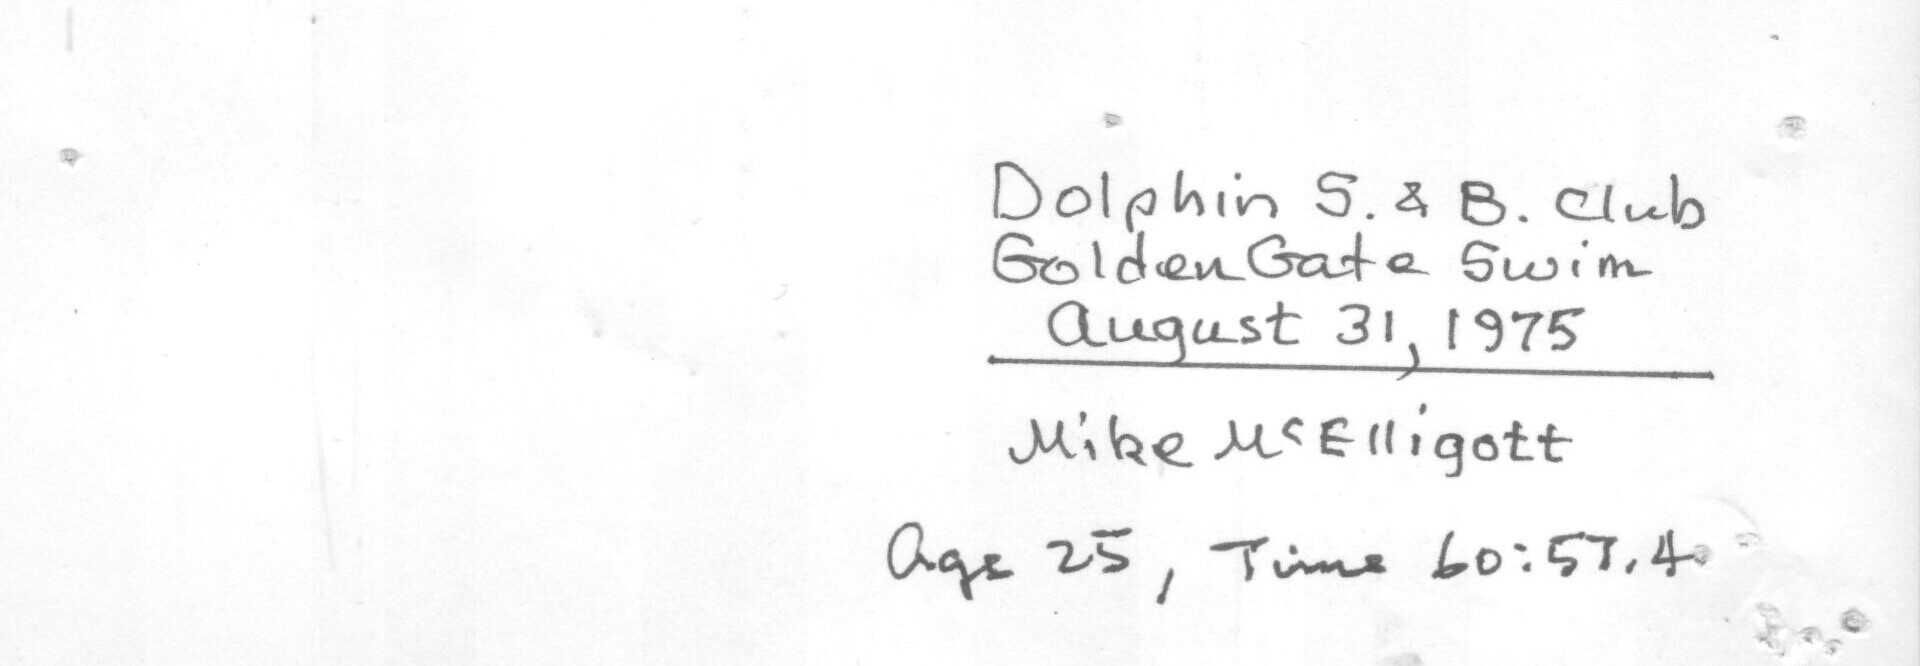 Dolphin S. & B. Club
Golden Gate Swim
August 31, 1975
Mike McElligott
Age 25, Time 60:57.4